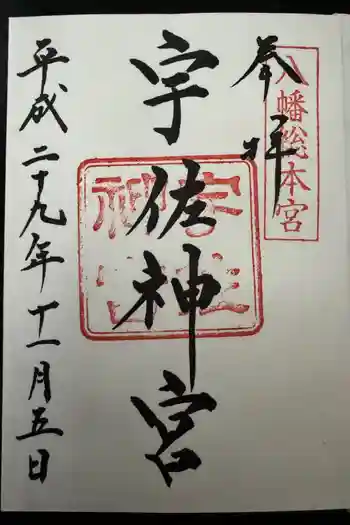 八幡総本宮
奉拝
宇佐神宮
宇佐神宮
平成二十九年十一月五日